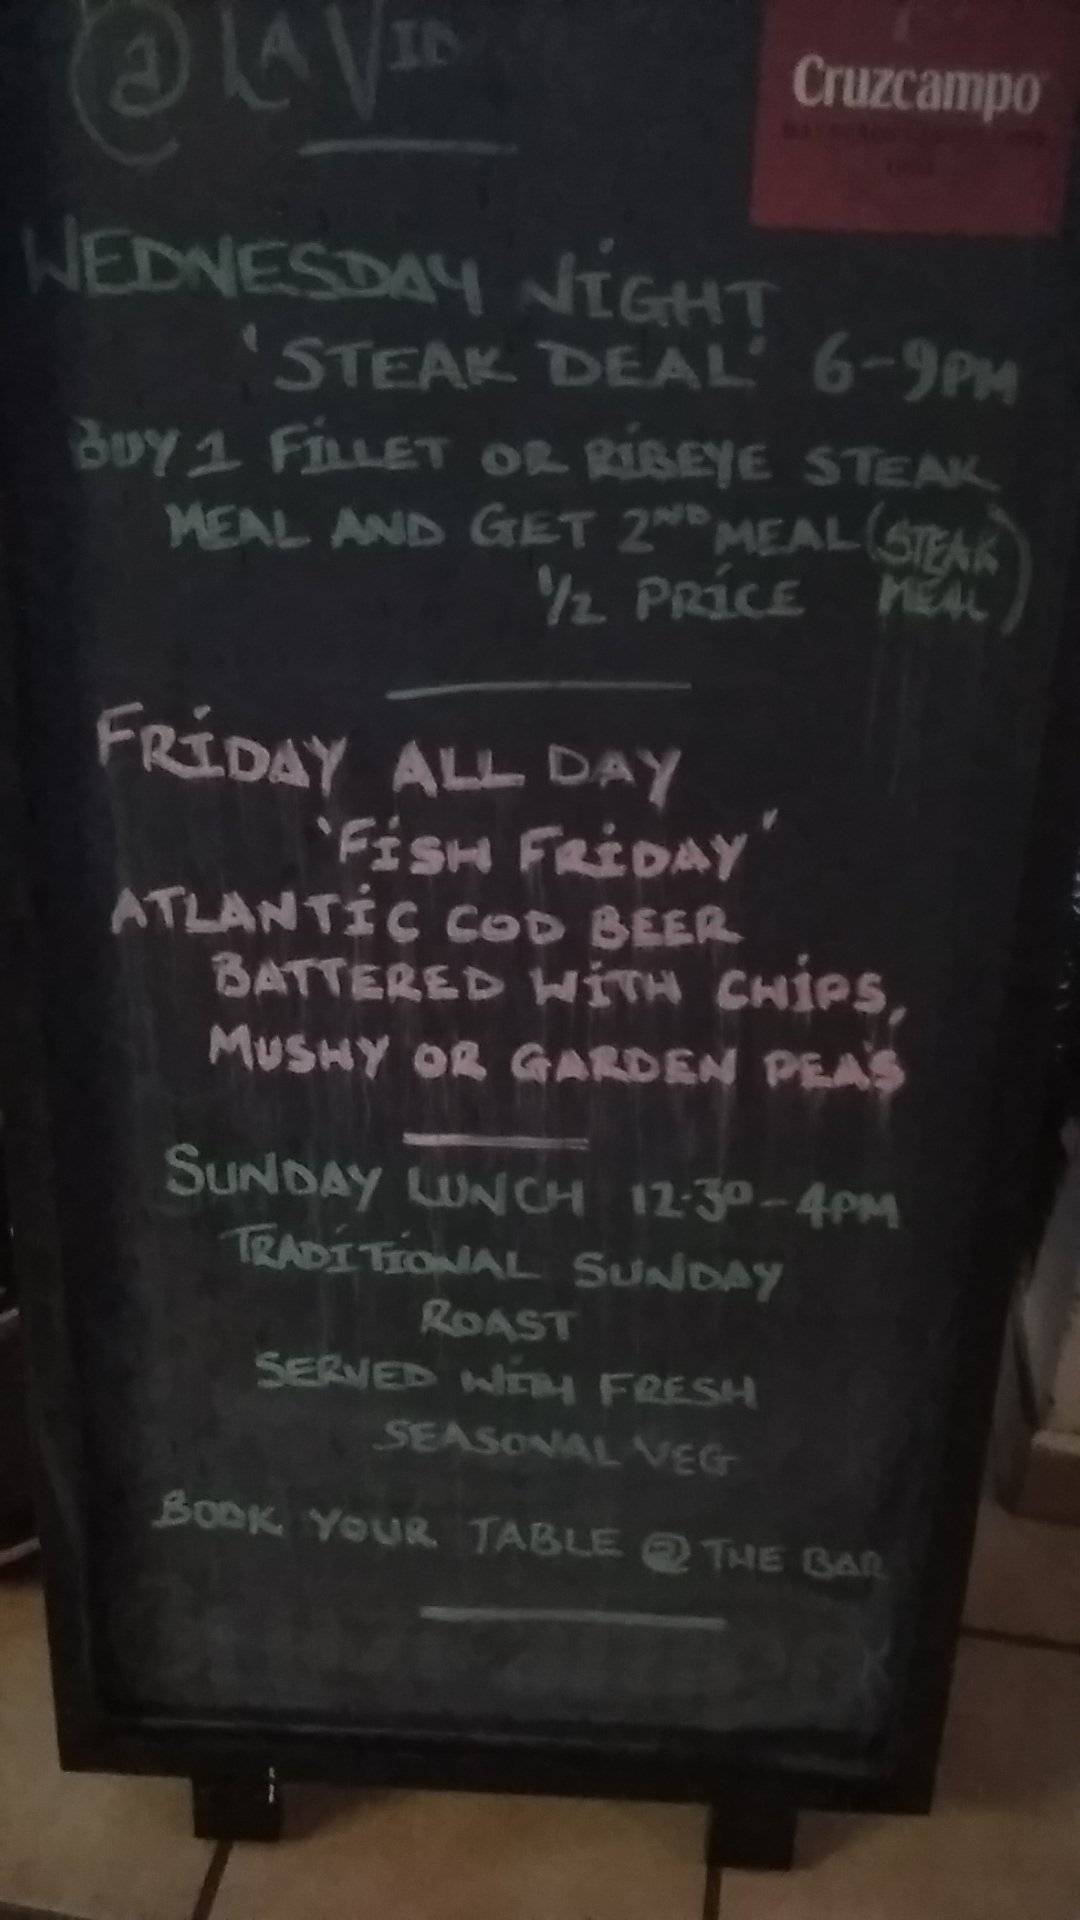 @ LA VID
Cruzcampo
WEDNESDAY NIGHT
'STEAK DEAL' 6-9PM
BUY 1 FILLET OR RIBEYE STEAK
MEAL AND GET 2ND MEAL (STEAK
½ PRICE MEAL)
FRIDAY ALL DAY
'FISH FRIDAY'
ATLANTIC COD BEER
BATTERED WITH CHIPS,
MUSHY OR GARDEN PEAS
SUNDAY LUNCH 12.30-4PM
TRADITIONAL SUNDAY
ROAST
SERVED WITH FRESH
SEASONAL VEG
BOOK YOUR TABLE @ THE BAR